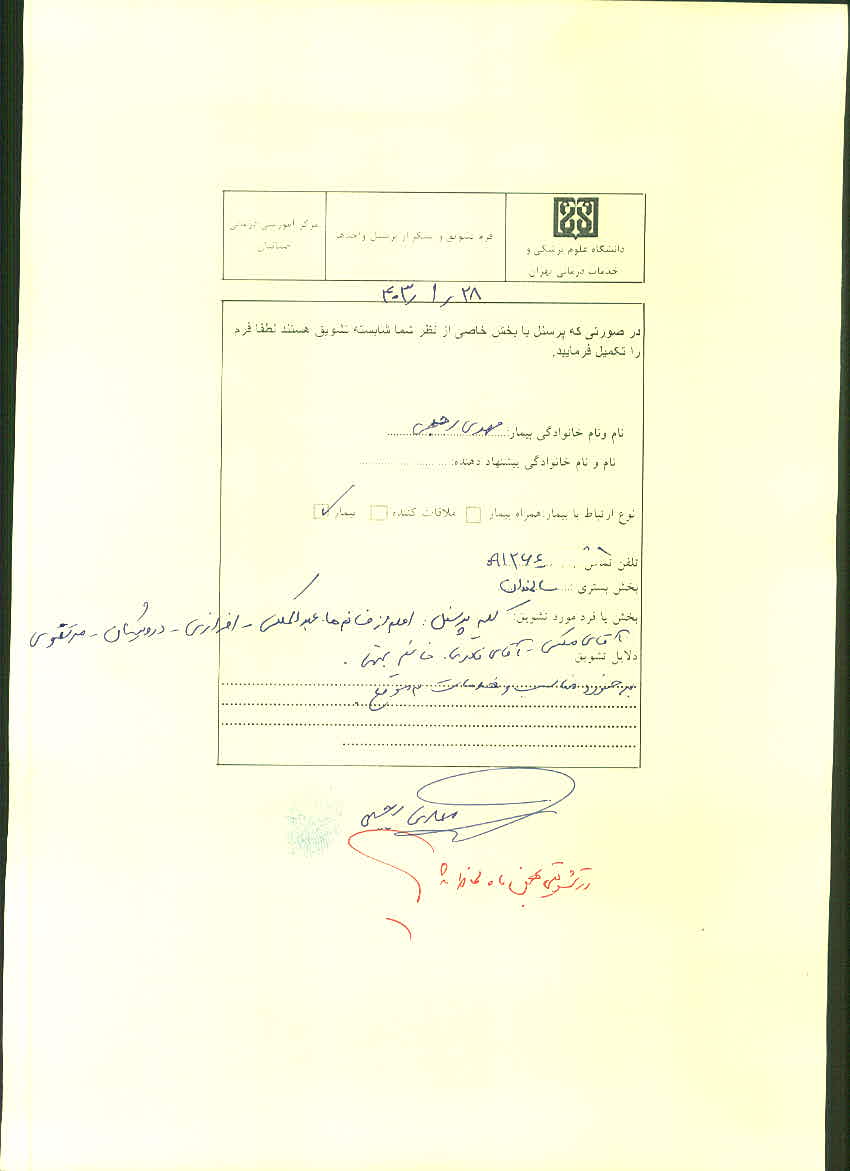 دانشگاه علوم پزشکی و
خدمات درمانی تهران
فرم تشویق و تشکر از پرسنل واحدها
مرکز آموزشی درمانی
ضیائیان
۴۰۳ ر ۱ ر ۲۸
در صورتی که پرسنل یا بخش خاصی از نظر شما شایسته تشویق هستند لطفا فرم
را تکمیل فرمایید.
نام ونام خانوادگی بیمار: مهدی رحیمی
نام و نام خانوادگی پیشنهاد دهنده:
نوع ارتباط با بیمار: همراه بیمار ملاقات کننده بیمار
تلفن تماس
بخش بستری : سالمندان
بخش یا فرد مورد تشویق: کلیه پرسنل : اعم از خانم ها عبدالملکی - افرازی - درویشیان -
دلایل تشویق آقای - آقای . خانم
برخورد مناسب و خدمات
مهدی رحیمی
در تشویقی ماه لحاظ